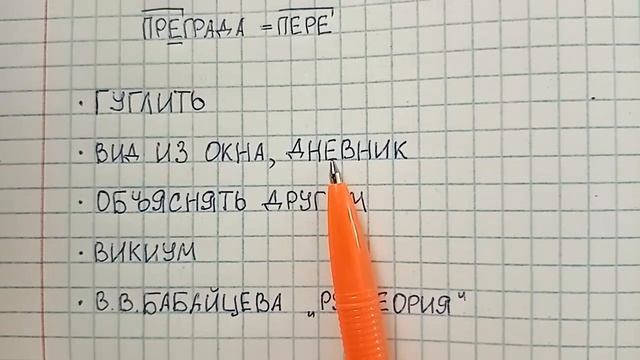 ПРЕГРАДА = ПЕРЕ
· ГУГЛИТЬ
· ВИД ИЗ ОКНА, ДНЕВНИК
· ОБЪЯСНЯТЬ
· ВИКИУМ
· В.В.БАБАЙЦЕВА